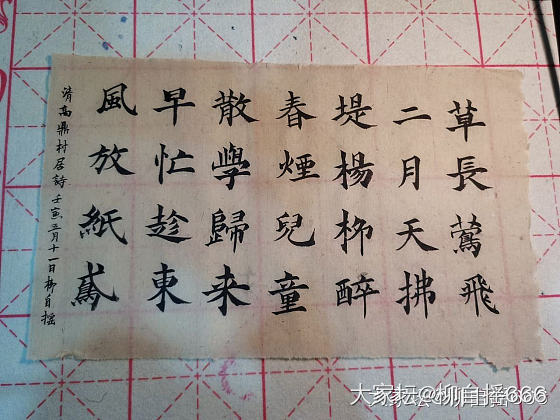 草長鶯飛
二月天拂
堤楊柳醉
春煙兒童
散學歸来
早忙趁東
風放紙鳶
清高鼎村居詩 壬寅三月十一日柳自摇
大家坛@柳自摇666